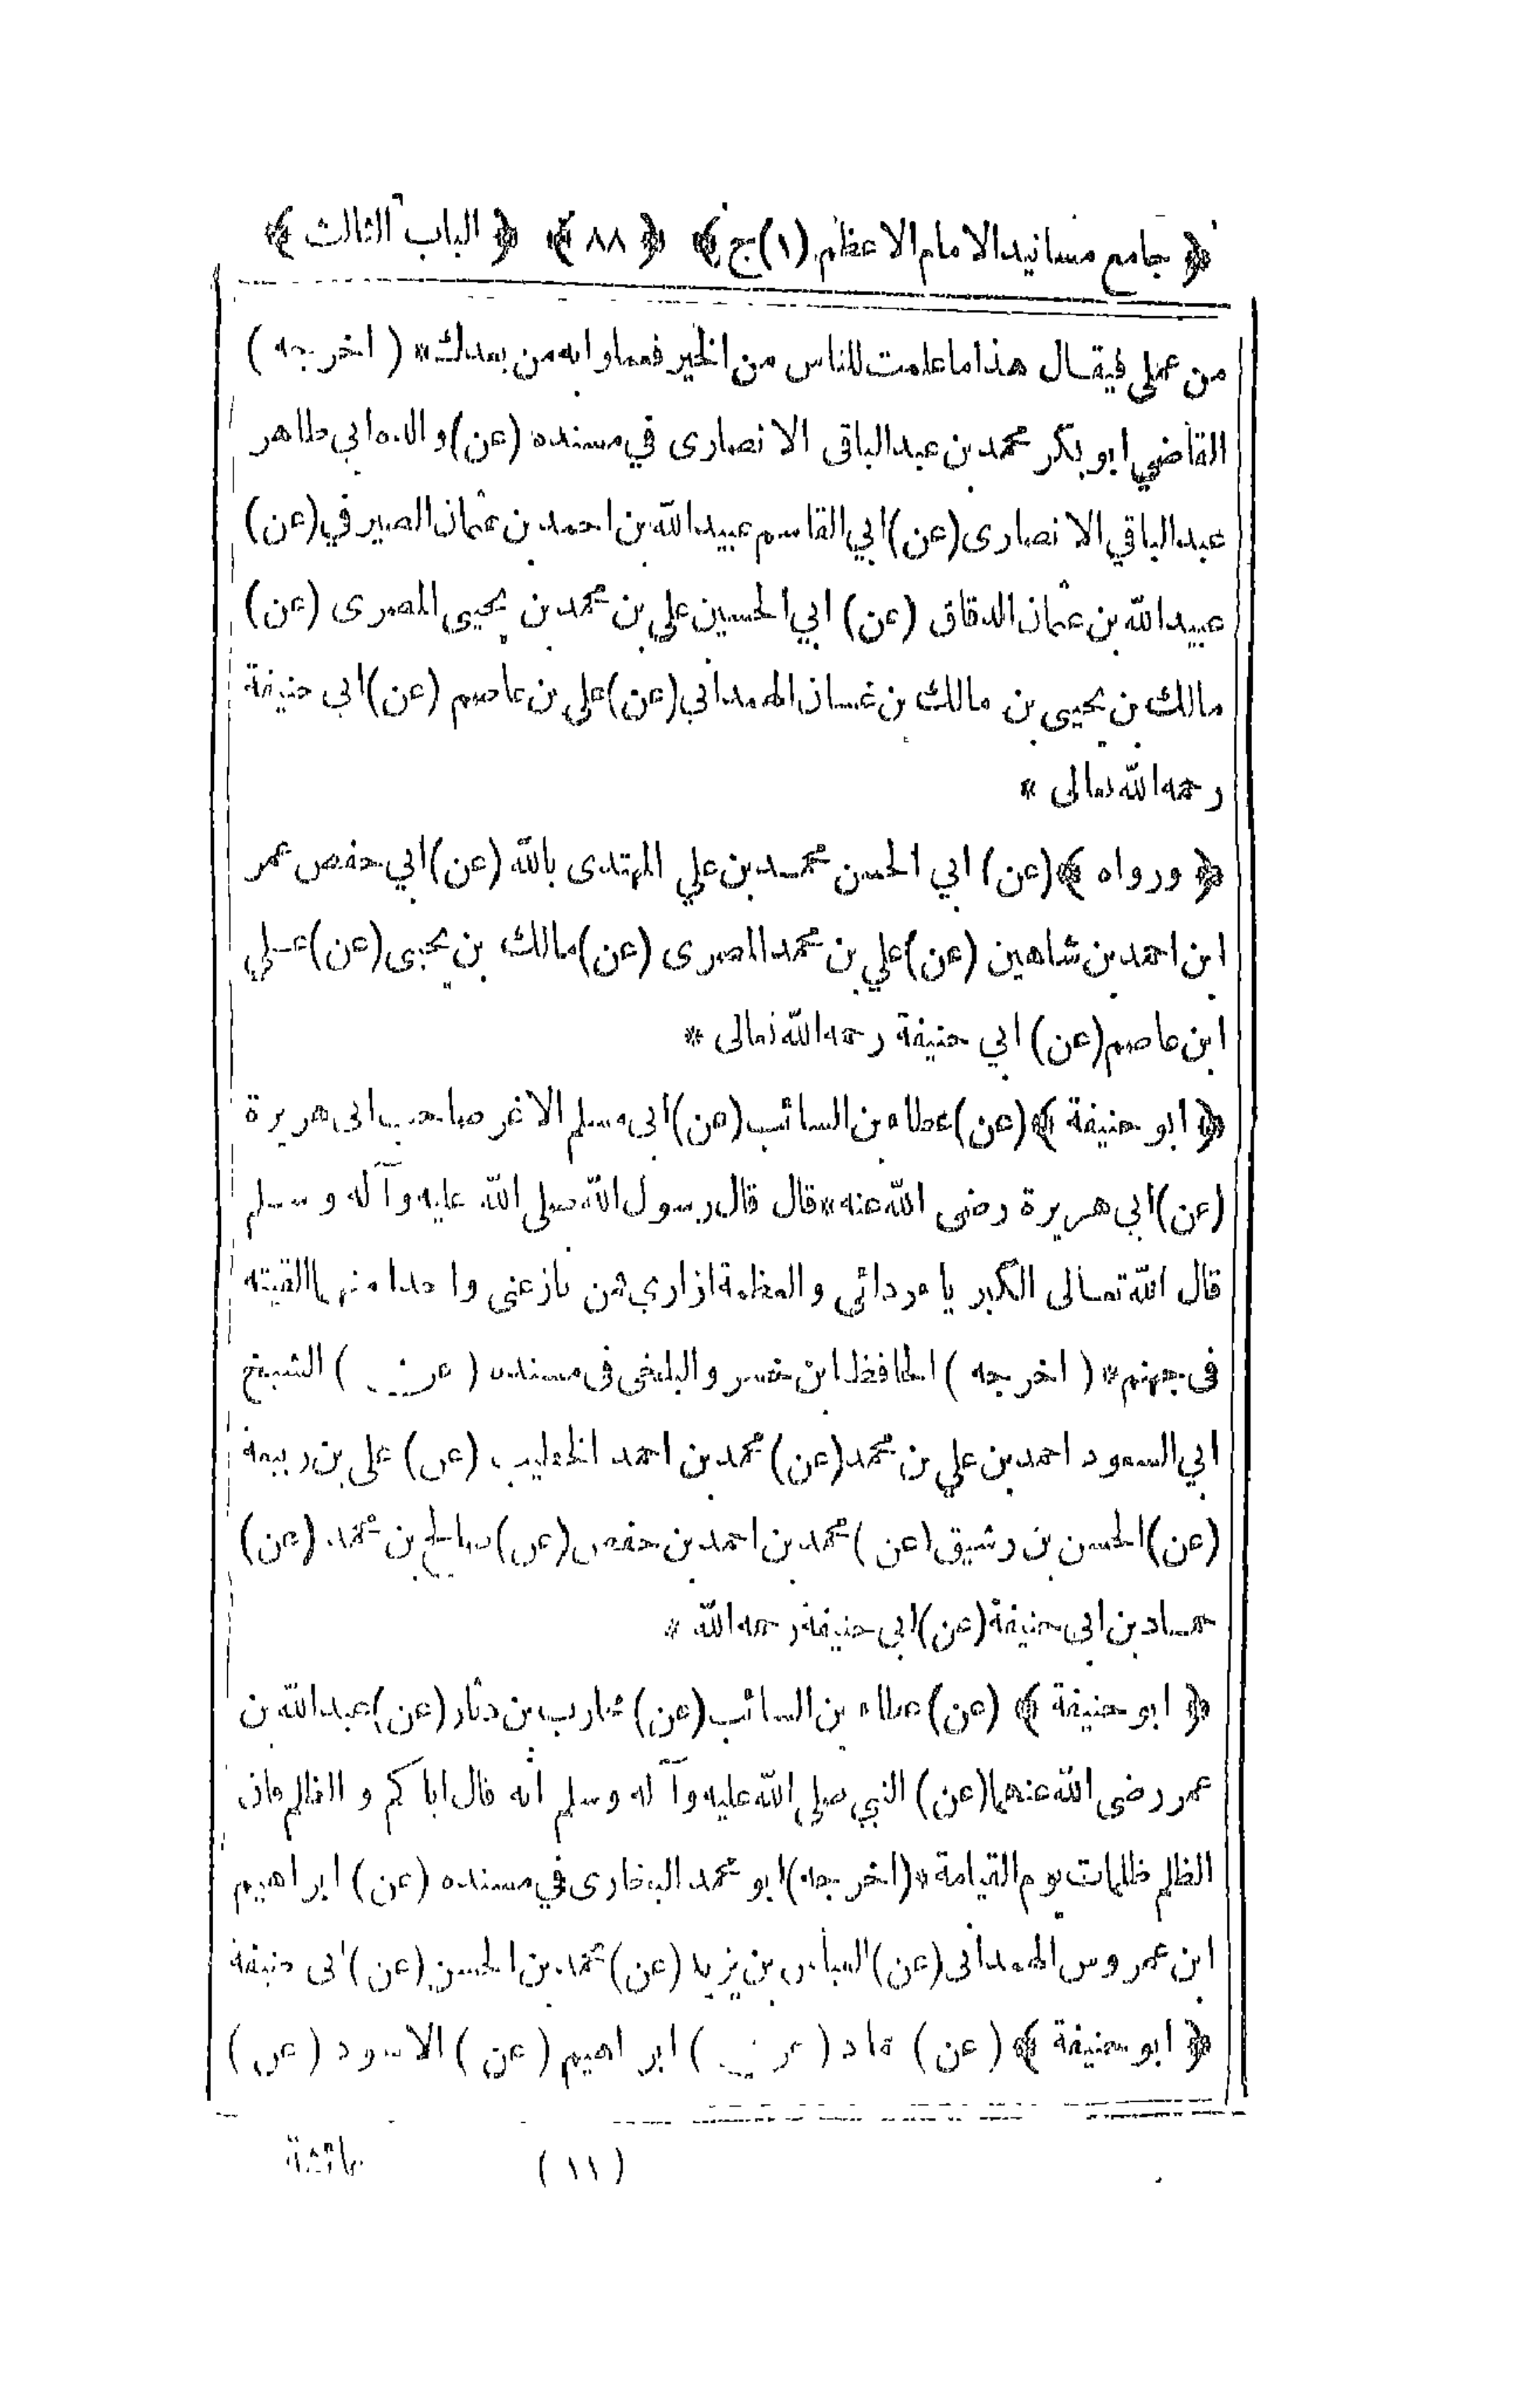 ﴿ جامع مسانيد الامام الاعظم (١) ج ﴾ ﴿ ٨٨ ﴾ ﴿ الباب الثالث ﴾
من عملى فيقال هذا ما علمت للناس من الخير فعملوا به من بعدك * ( اخرجه )
القاضي ابو بكر محمد بن عبد الباقى الانصارى في مسنده (عن) والده ابى طاهر
عبد الباقي الانصارى (عن) ابي القاسم عبيد الله بن احمد بن عثمان الصيرفي (عن)
عبيد الله بن عثمان الدقاق (عن) ابي الحسين علي بن محمد بن يحيى المصرى (عن)
مالك بن يحيى بن مالك بن غسان الهمداني (عن) علي بن عاصم (عن) ابى حنيفة
رحمه الله تعالى *
﴿ ورواه ﴾ (عن) ابي الحسن محمد بن علي المهتدى بالله (عن) ابي حفص عمر
ابن احمد بن شاهين (عن) علي بن محمد المصرى (عن) مالك بن يحيى (عن) علي
ابن عاصم (عن) ابي حنيفة رحمه الله تعالى *
﴿ ابو حنيفة ﴾ (عن) عطاء بن السائب (عن) ابى مسلم الاغر صاحب ابى هريرة
(عن) ابي هريرة رضى الله عنه * قال قال رسول الله صلى الله عليه وآله وسلم
قال الله تعالى الكبرياء ردائى والعظمة ازاري فمن نازعنى واحدا منهما القيته
فى جهنم * ( اخرجه ) الحافظ ابن خسرو البلخى فى مسنده ( عن ) الشيخ
ابي السعود احمد بن علي بن محمد (عن) محمد بن احمد الخطيب (عن) على بن ربيعة
(عن) الحسن بن رشيق (عن) محمد بن احمد بن حفص (عن) صالح بن محمد (عن)
حماد بن ابى حنيفة (عن) ابي حنيفة رحمه الله *
﴿ ابو حنيفة ﴾ (عن) عطاء بن السائب (عن) محارب بن دثار (عن) عبد الله بن
عمر رضى الله عنهما (عن) النبي صلى الله عليه وآله وسلم انه قال اياكم والظلم فان
الظلم ظلمات يوم القيامة * (اخرجه) ابو محمد البخارى في مسنده (عن) ابراهيم
ابن عمروس الهمدانى (عن) العباس بن يزيد (عن) محمد بن الحسن (عن) ابى حنيفة
﴿ ابو حنيفة ﴾ (عن) حماد ( عن ) ابراهيم (عن) الاسود (عن)
(١١) عائشة